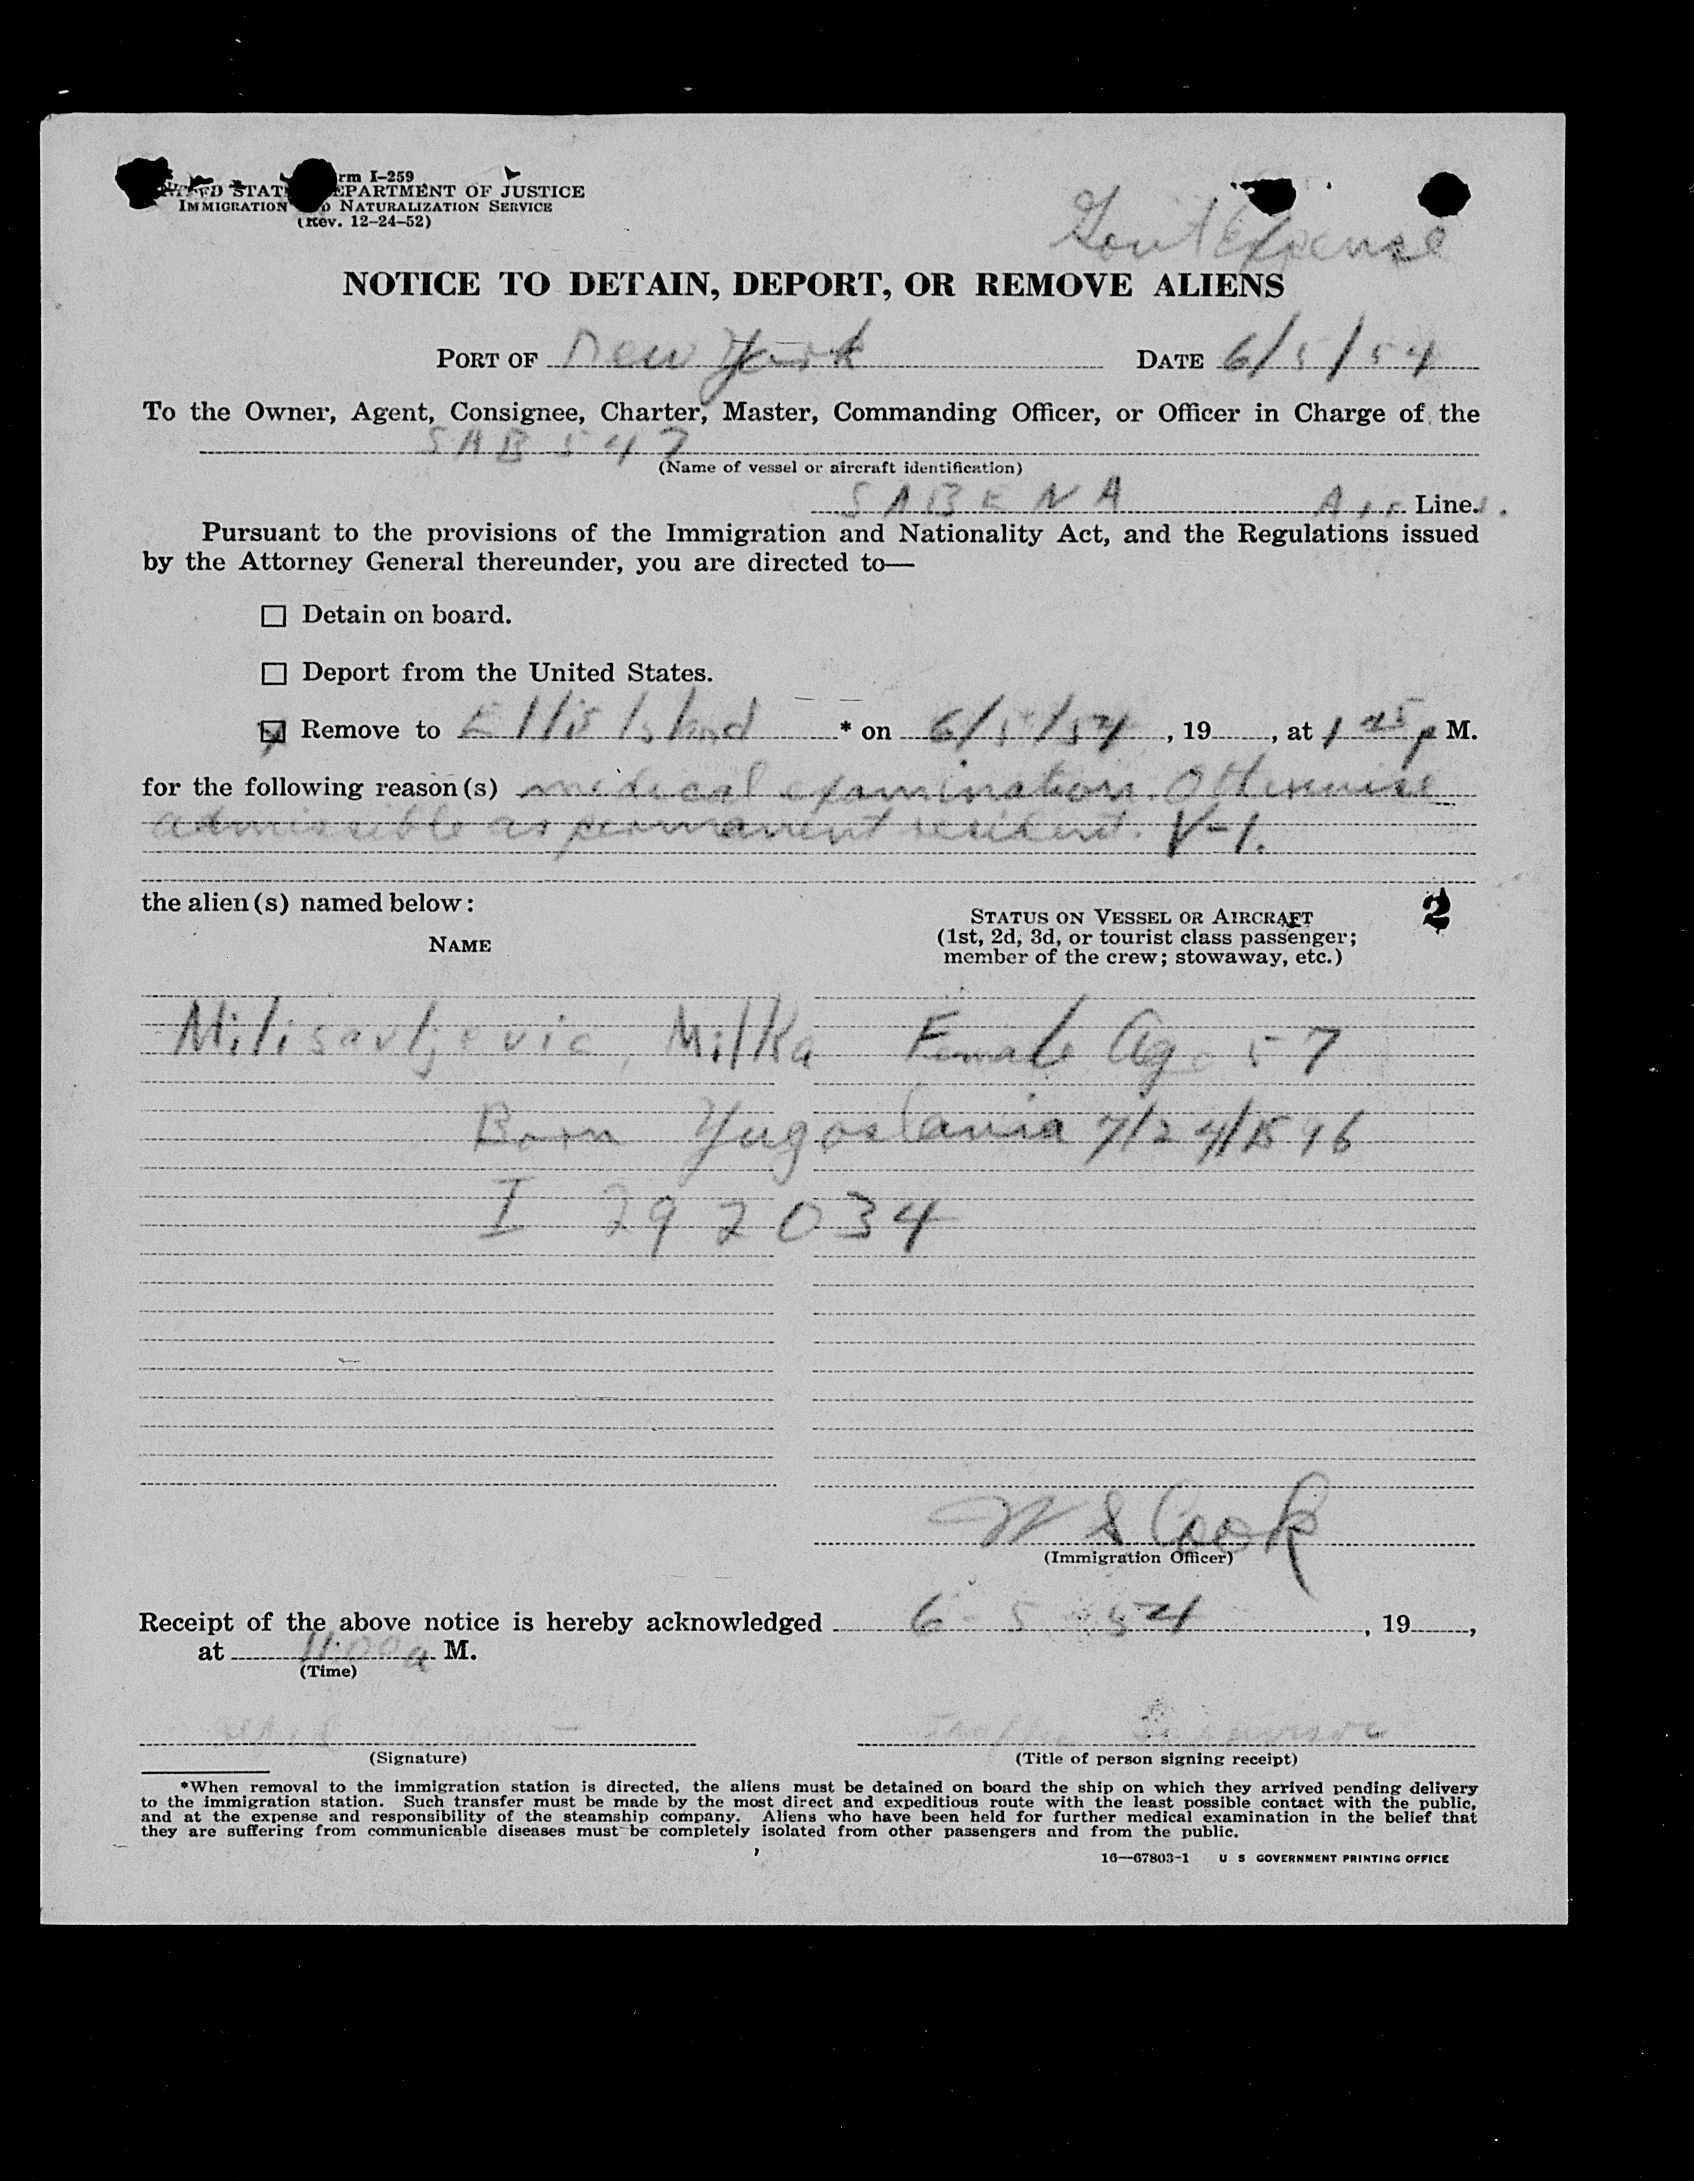 rm I-259
STAT EPARTMENT OF JUSTICE
IMMIGRATION NATURALIZATION SERVICE
(Rev. 12-24-52)
Gov't Expense
NOTICE TO DETAIN, DEPORT, OR REMOVE ALIENS
PORT OF New York DATE 6/5/54
To the Owner, Agent, Consignee, Charter, Master, Commanding Officer, or Officer in Charge of the
SAB 547
(Name of vessel or aircraft identification)
SABENA Air Lines.
Pursuant to the provisions of the Immigration and Nationality Act, and the Regulations issued
by the Attorney General thereunder, you are directed to—
☐ Detain on board.
☐ Deport from the United States.
☒ Remove to Ellis Island * on 6/5/54, 19 , at 1 25 p M.
for the following reason(s) medical examination. Otherwise
admissible as permanent resident. V-1.
the alien(s) named below:
2
NAME
STATUS ON VESSEL OR AIRCRAFT
(1st, 2d, 3d, or tourist class passenger;
member of the crew; stowaway, etc.)
Milisavljevic, Milka Female Age 57
Born Yugoslavia 7/24/1896
I 292034
W S Cook
(Immigration Officer)
Receipt of the above notice is hereby acknowledged 6-5-54, 19 ,
at 11:00 a M.
(Time)
Traffic Supervisor
(Signature) (Title of person signing receipt)
*When removal to the immigration station is directed, the aliens must be detained on board the ship on which they arrived pending delivery
to the immigration station. Such transfer must be made by the most direct and expeditious route with the least possible contact with the public,
and at the expense and responsibility of the steamship company. Aliens who have been held for further medical examination in the belief that
they are suffering from communicable diseases must be completely isolated from other passengers and from the public.
16—67803-1 U S GOVERNMENT PRINTING OFFICE